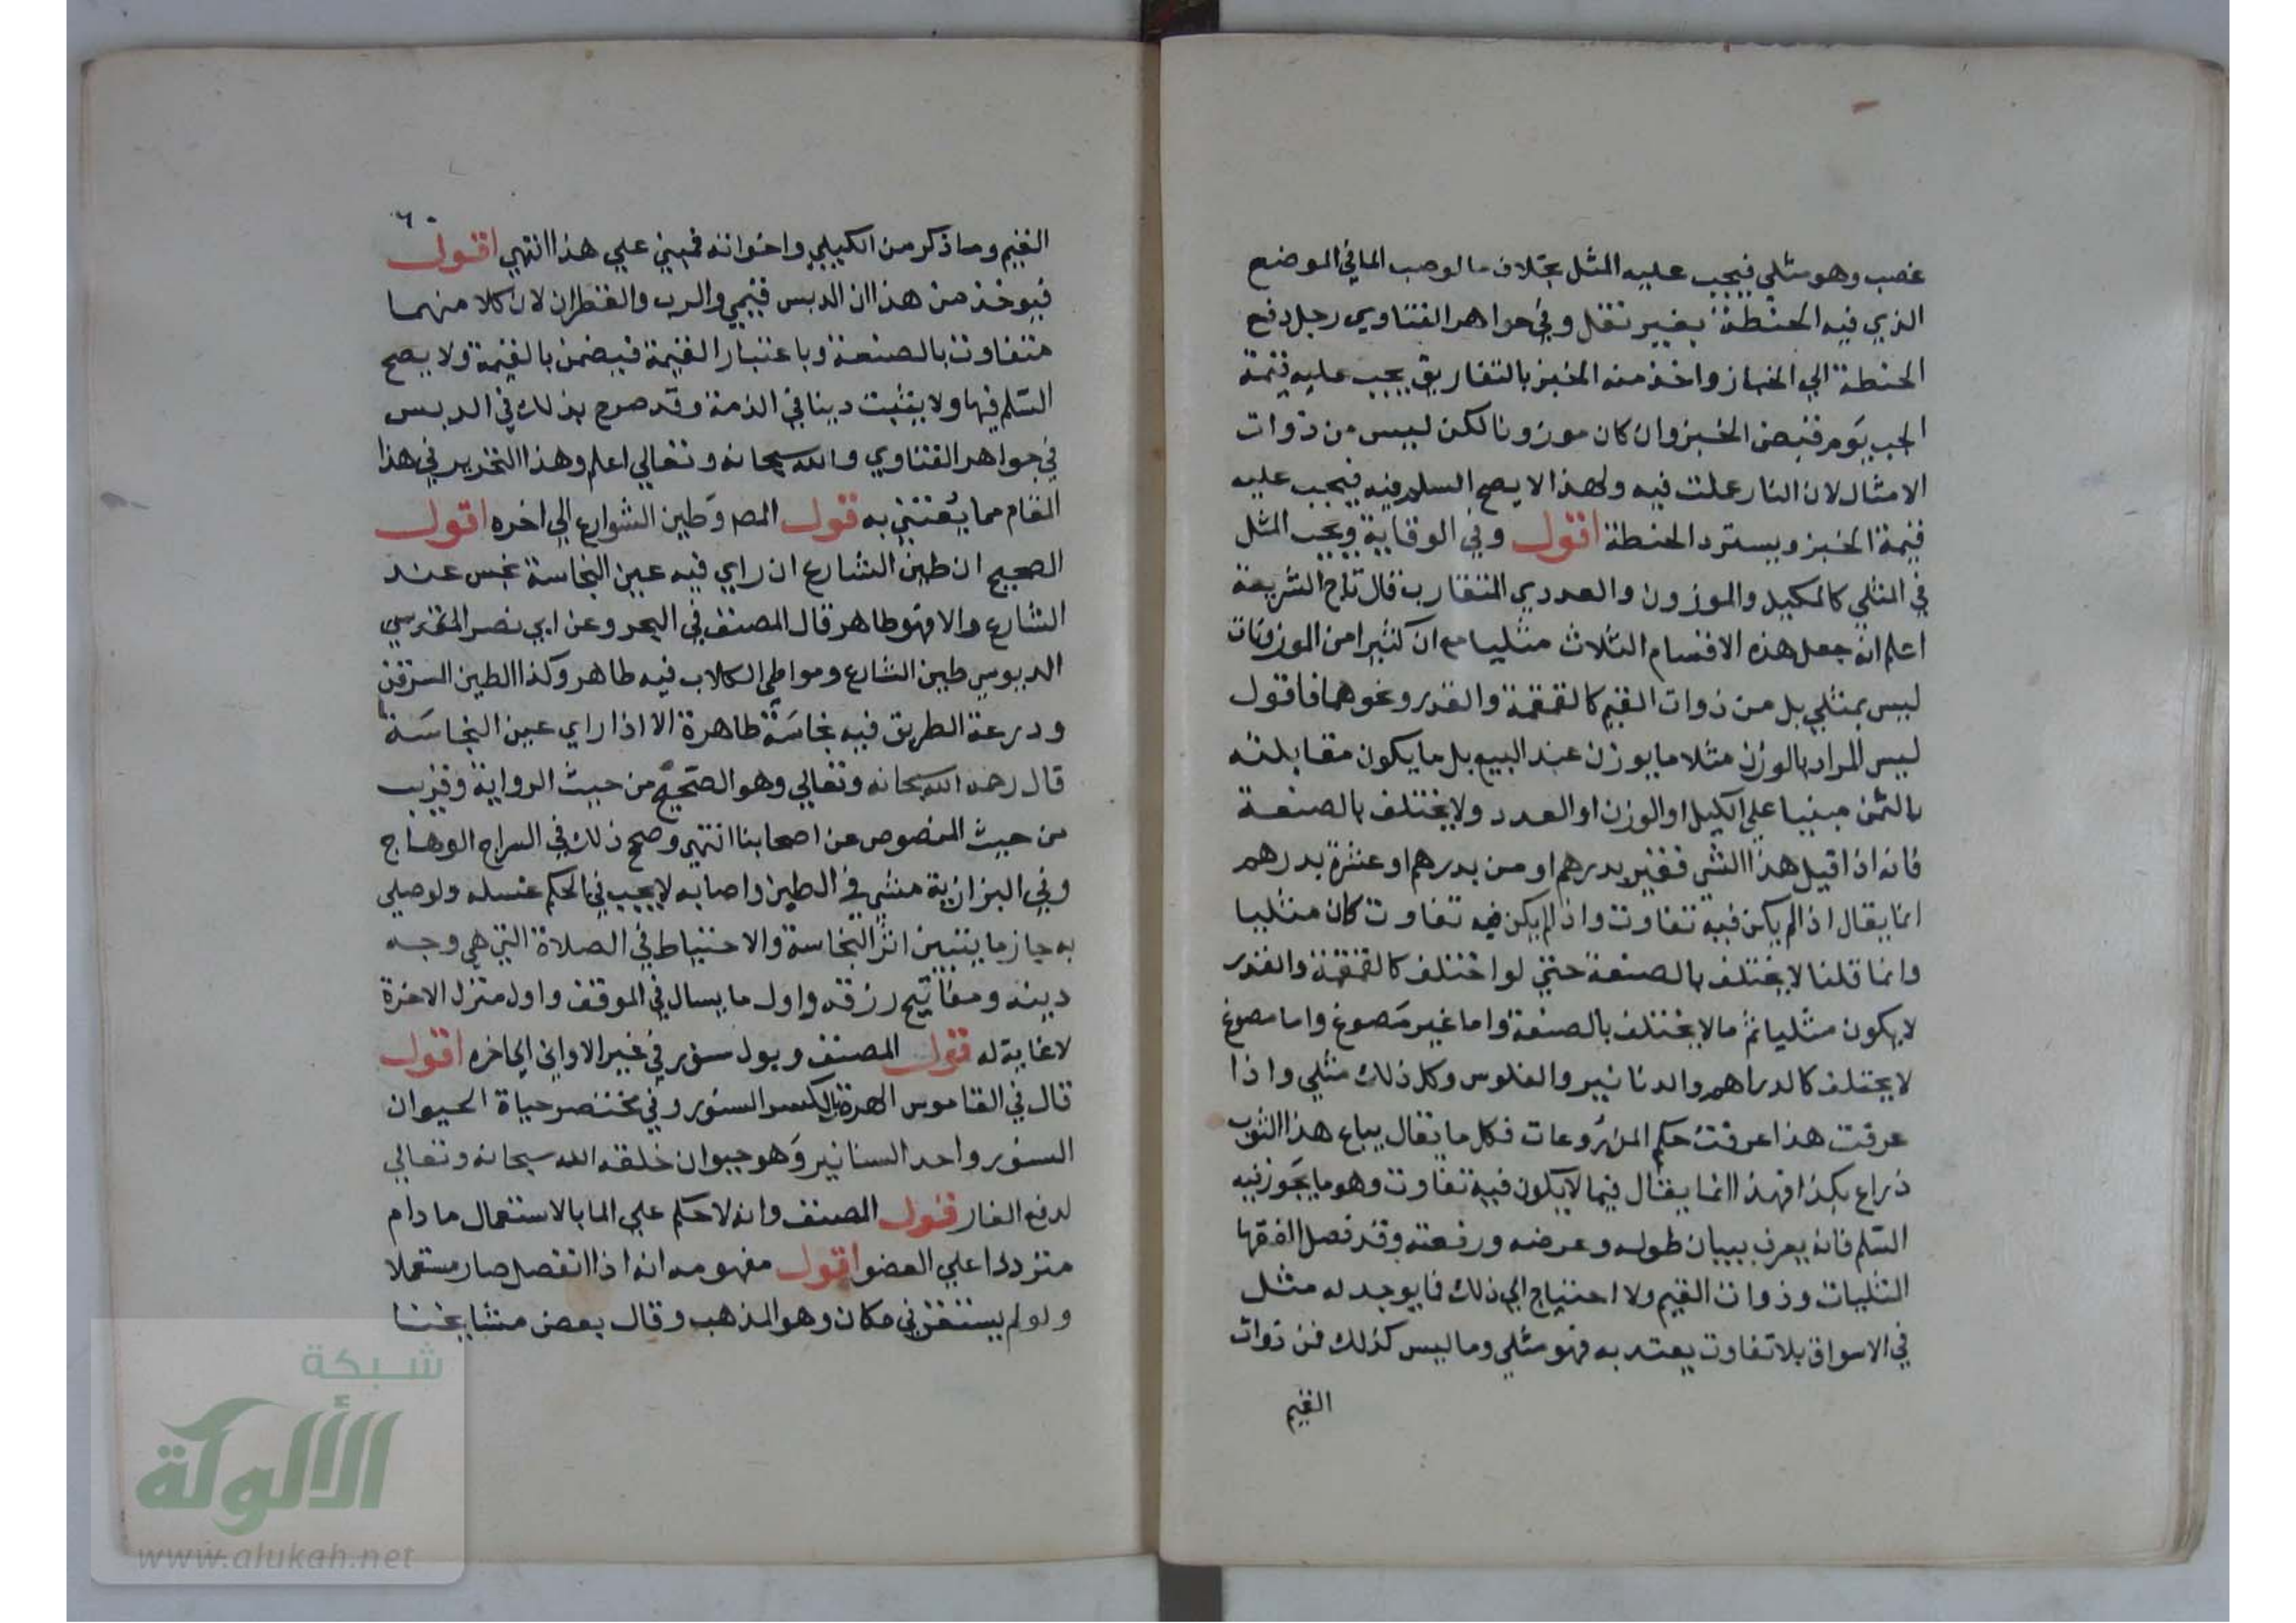 غصب وهو مثلي فيجب عليه المثل بخلاف ما لو صب الما في الموضع
الذي فيه الحنطة بغير نقل وفي جواهر الفتاوي رجل دفع
الحنطة الي الخباز واخذ منه الخبز بالتفاريق يجب عليه قيمة
الخبز يوم قبض الخبز وان كان موزونا لكن ليس من ذوات
الامثال لان النار عملت فيه ولهذا لا يصح السلم فيه فيجب عليه
قيمة الخبز ويسترد الحنطة اقول وفي الوقاية ويجب المثل
في المثلي كالمكيل والموزون والعددي المتقارب قال تاج الشريعة
اعلم انه جعل هذه الاقسام الثلاث مثليا مع ان كثيرا من الموزونات
ليس بمثلي بل من ذوات القيم كالقمقمة والقدر ونحوهما فاقول
ليس المراد بالوزن مثلا ما يوزن عند البيع بل ما يكون مقابلته
بالثمن مبنيا علي الكيل او الوزن او العدد ولا يختلف بالصنعة
فانه اذا قيل هذا الشي قفيز بدرهم او من بدرهم او عشرة بدرهم
انما يقال اذا لم يكن فيه تفاوت واذا لم يكن فيه تفاوت كان مثليا
وانما قلنا لا يختلف بالصنعة حتي لو اختلف كالقمقمة والقدر
لا يكون مثليا ثم ما لا يختلف بالصنعة واما غير مصوغ واما مصوغ
لا يختلف كالدراهم والدنانير والفلوس وكل ذلك مثلي واذا
عرفت هذا عرفت حكم المذروعات فكل ما يقال يباع هذا الثوب
ذراع بكذا فهذا انما يقال فيما لا يكون فيه تفاوت وهو ما يجوز فيه
السلم فانه يعرف ببيان طوله وعرضه ورقعته وقد فصل الفقها
المثليات وذوات القيم ولا احتياج الي ذلك فما يوجد له مثل
في الاسواق بلا تفاوت يعتد به فهو مثلي وما ليس كذلك فمن ذوات
القيم
٦٠
القيم وما ذكر من الكيلي واخواته فمبني علي هذا انتهي اقول
فيوخذ من هذا ان الدبس قيمي والرب والقطران لان كلا منهما
متفاوت بالصنعة وباعتبار القيمة فيضمن بالقيمة ولا يصح
السلم فيها ولا يثبت دينا في الذمة وقد صرح بذلك في الدبس
في جواهر الفتاوي والله سبحانه وتعالي اعلم وهذا التحرير في هذا
المقام مما يعتني به قول المص وطين الشوارع الي اخره اقول
الصحيح ان طين الشارع ان راي فيه عين النجاسة نجس عند
الشارع والا فهو طاهر قال المصنف في البحر وعن ابي نصر
الدبوسي طين الشارع ومواطي الكلاب فيه طاهر وكذا الطين المسرقن
ودرعة الطريق فيه نجاسة طاهرة الا اذا راي عين النجاسة
قال رحمه الله سبحانه وتعالي وهو الصحيح من حيث الرواية وقريب
من حيث المنصوص عن اصحابنا انتهي وصحح ذلك في السراج الوهاج
وفي البزازية مشي في الطين واصابه لا يجب في الحكم غسله ولو صلي
به جاز ما يتبين اثر النجاسة والاحتياط في الصلاة التي هي وجه
دينه ومفاتيح رزقه واول ما يسال في الموقف واول منزل الاخرة
لا غاية له قول المصنف وبول سنور في غير الاواني الي اخره اقول
قال في القاموس الهرة بالكسر السنور وفي مختصر حياة الحيوان
السنور واحد السنانير وهو حيوان خلقه الله سبحانه وتعالي
لدفع الفار قول المصنف وانه لا حكم علي الما بالاستعمال ما دام
مترددا علي العضو اقول مفهومه انه اذا انفصل صار مستعملا
ولو لم يستقر في مكان وهو المذهب وقال بعض مشايخنا
شبكة
الألوكة
www.alukah.net